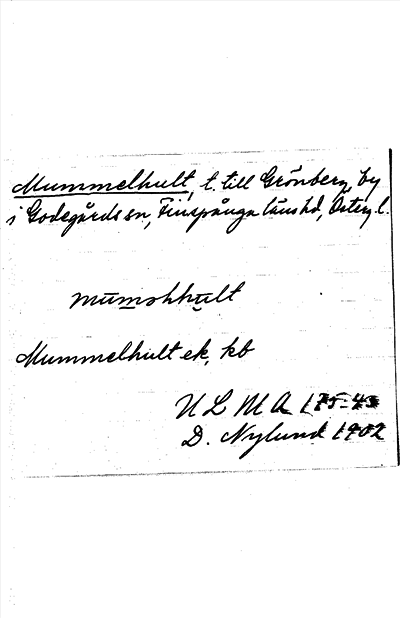 Mummelhult, t. till Grönberg, by
i Godegårds sn, Finspånga länshd, Österg. l.
Mummelhult ek, kb
U L M A 175:43
D. Nylund 1902